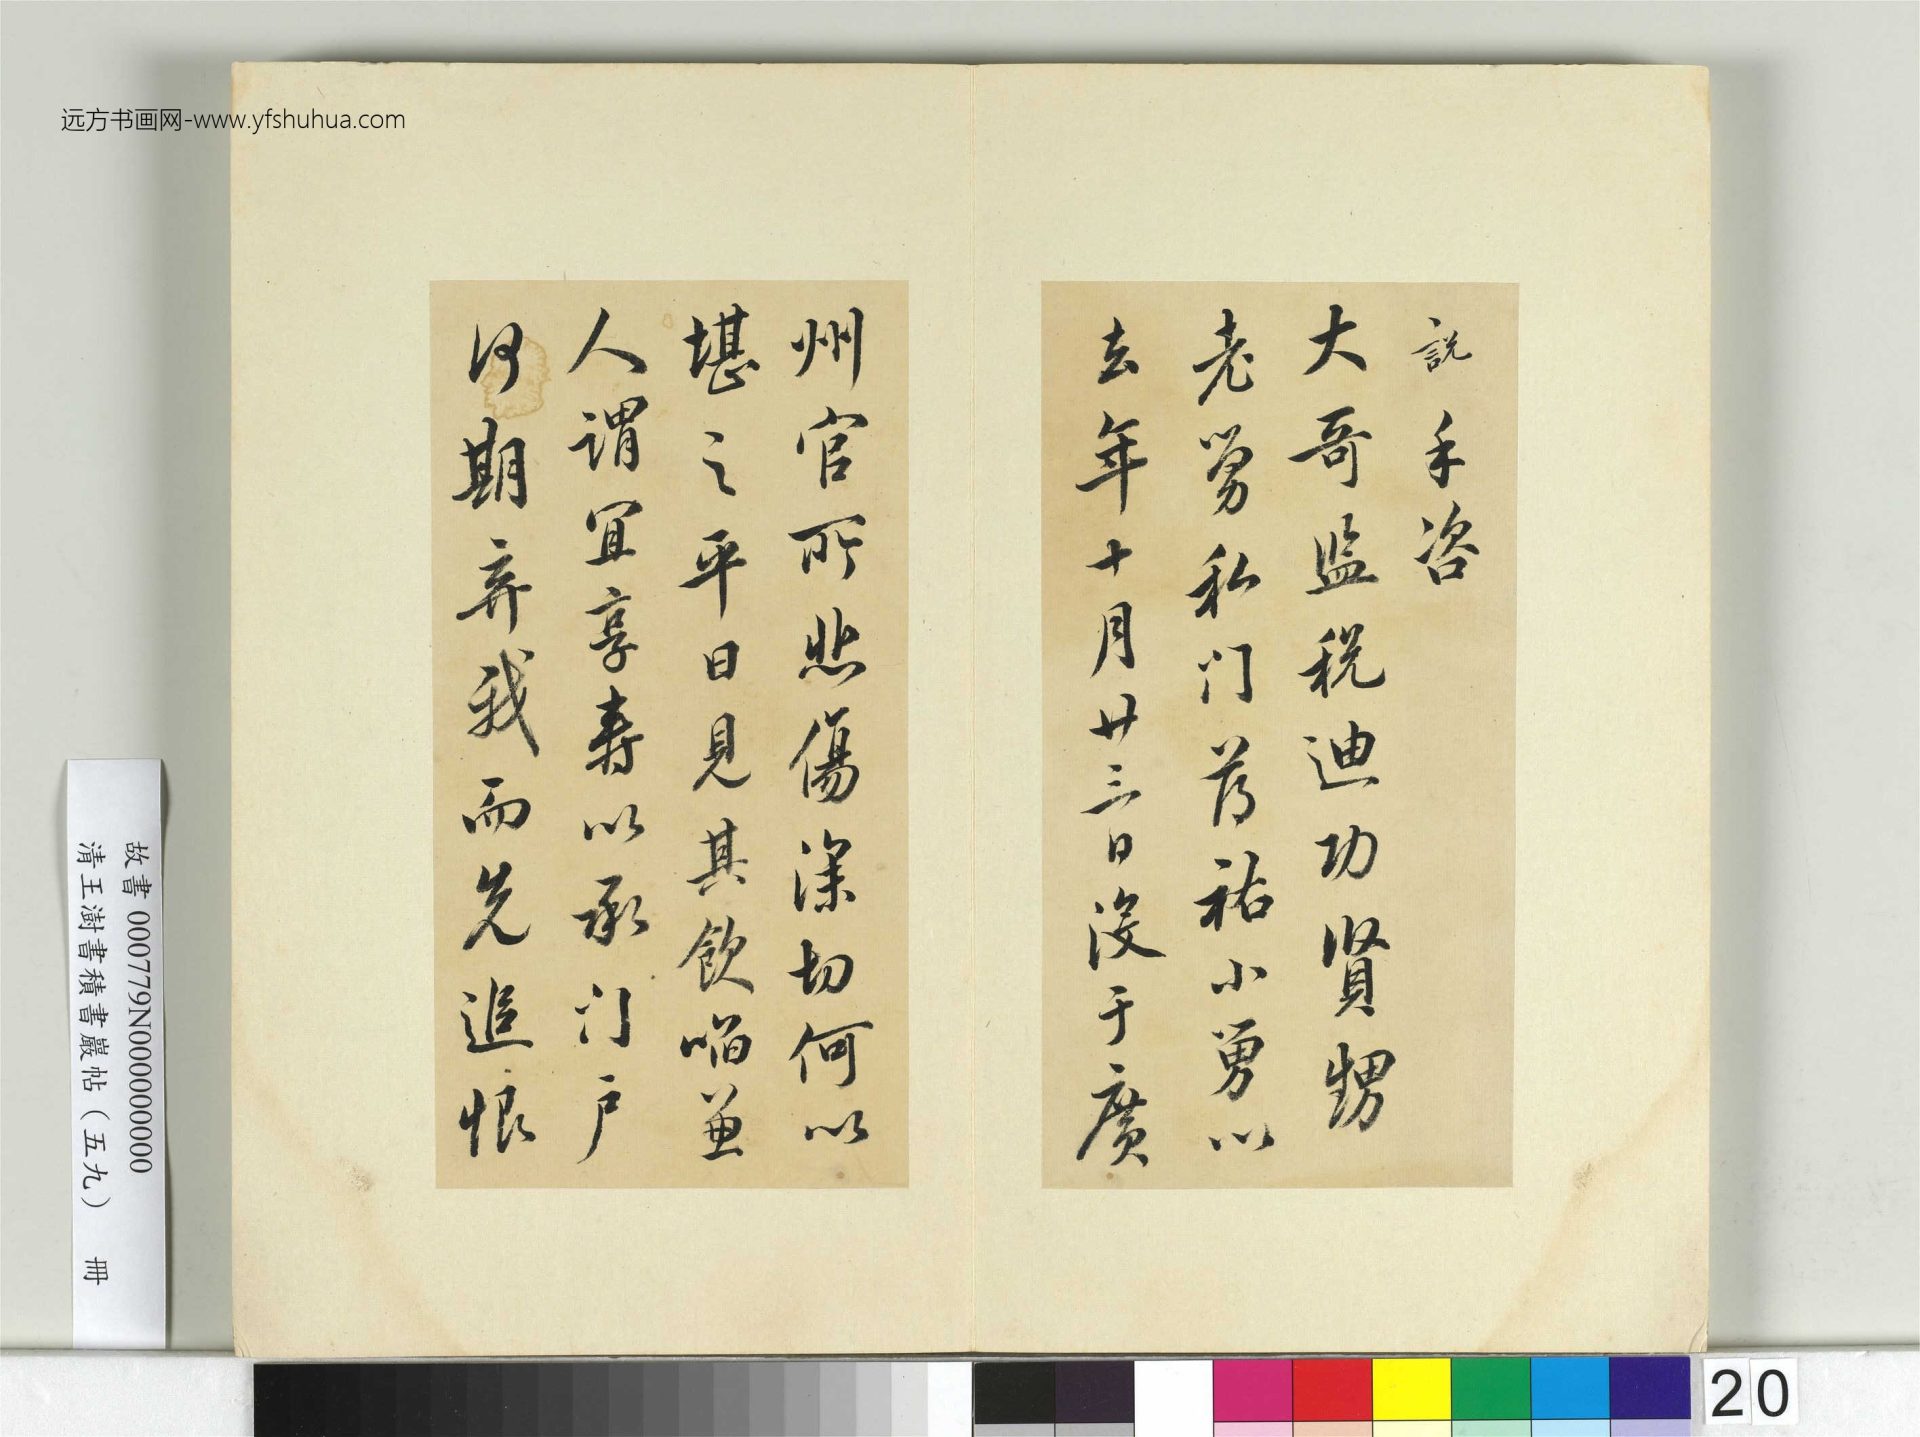 远方书画网-www.yfshuhua.com
說手咨
大哥监税迪功贤甥
老舅私门荐祐小舅以
去年十月廿三日没于廣
州官所悲傷深切何以
堪之平日見其飲啗兼
人谓宜享寿以承门户
何期弃我而先追恨
故書 000779N000000000
清王澍書積書巖帖（五九） 冊
20